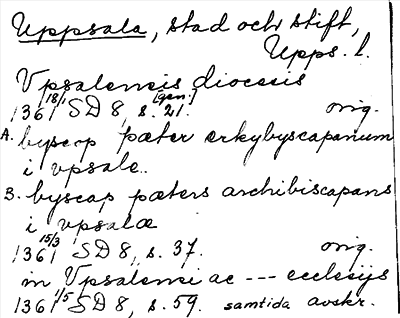 Uppsala, stad och stift,
Upps. l.
Vpsalensis diocesis
1361 18/1 SD 8, s. 21. [gen.] orig.
A. byscop pæter erkybyscapanum
i vpsale.
B. byscap pæters archibiscapans
i vpsalæ
1361 15/3 SD 8, s. 37. orig.
in Vpsalensi ac --- ecclesijs
1361 1/5 SD 8, s. 59. samtida avskr.